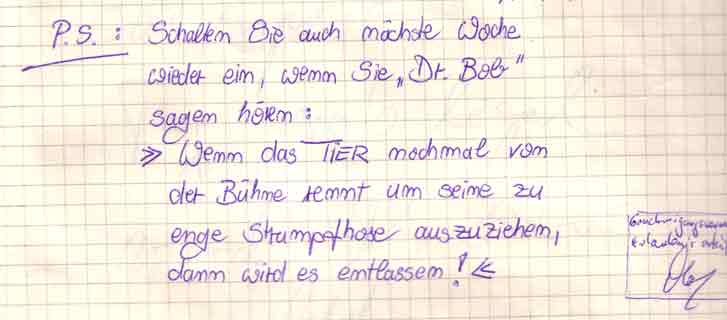 P.S.: Schalten Sie auch nächste Woche
wieder ein, wenn Sie „Dr. Bob"
sagen hören:
» Wenn das TIER nochmal von
der Bühne rennt um seine zu
enge Strumpfhose auszuziehen,
dann wird es entlassen! «